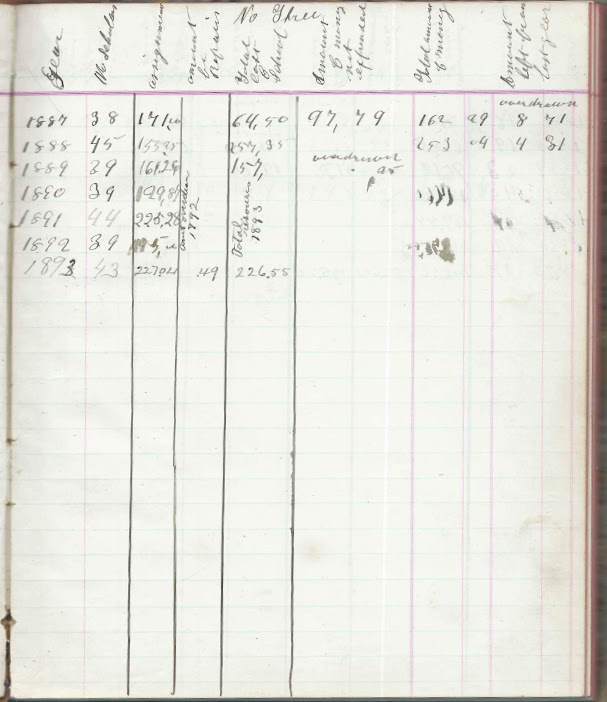 No Three
Year
No Scholars
assignment
amount
be
repairs
Total
Cost
of
School
Amount
of money
not
expended
Total amount
of money
Amount
left from
last year
overdrawn
1887 38 171,00 64,50 97,79 162 29 8 71
1888 45 155.95 257,35 253 04 4 31
overdrawn
1889 39 161,29 157, .95
1890 39 199,89
1891 44 228,28
amt overdrawn
1892
Total
resources
1893
1892 39
1893 43 227.04 .49 226.55